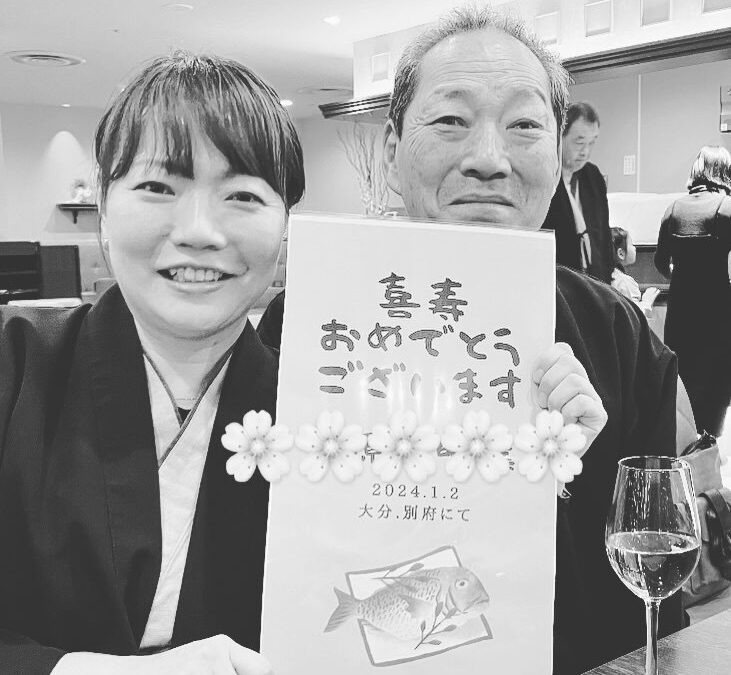 喜寿
おめでとう
ございます
2024.1.2
大分.別府にて